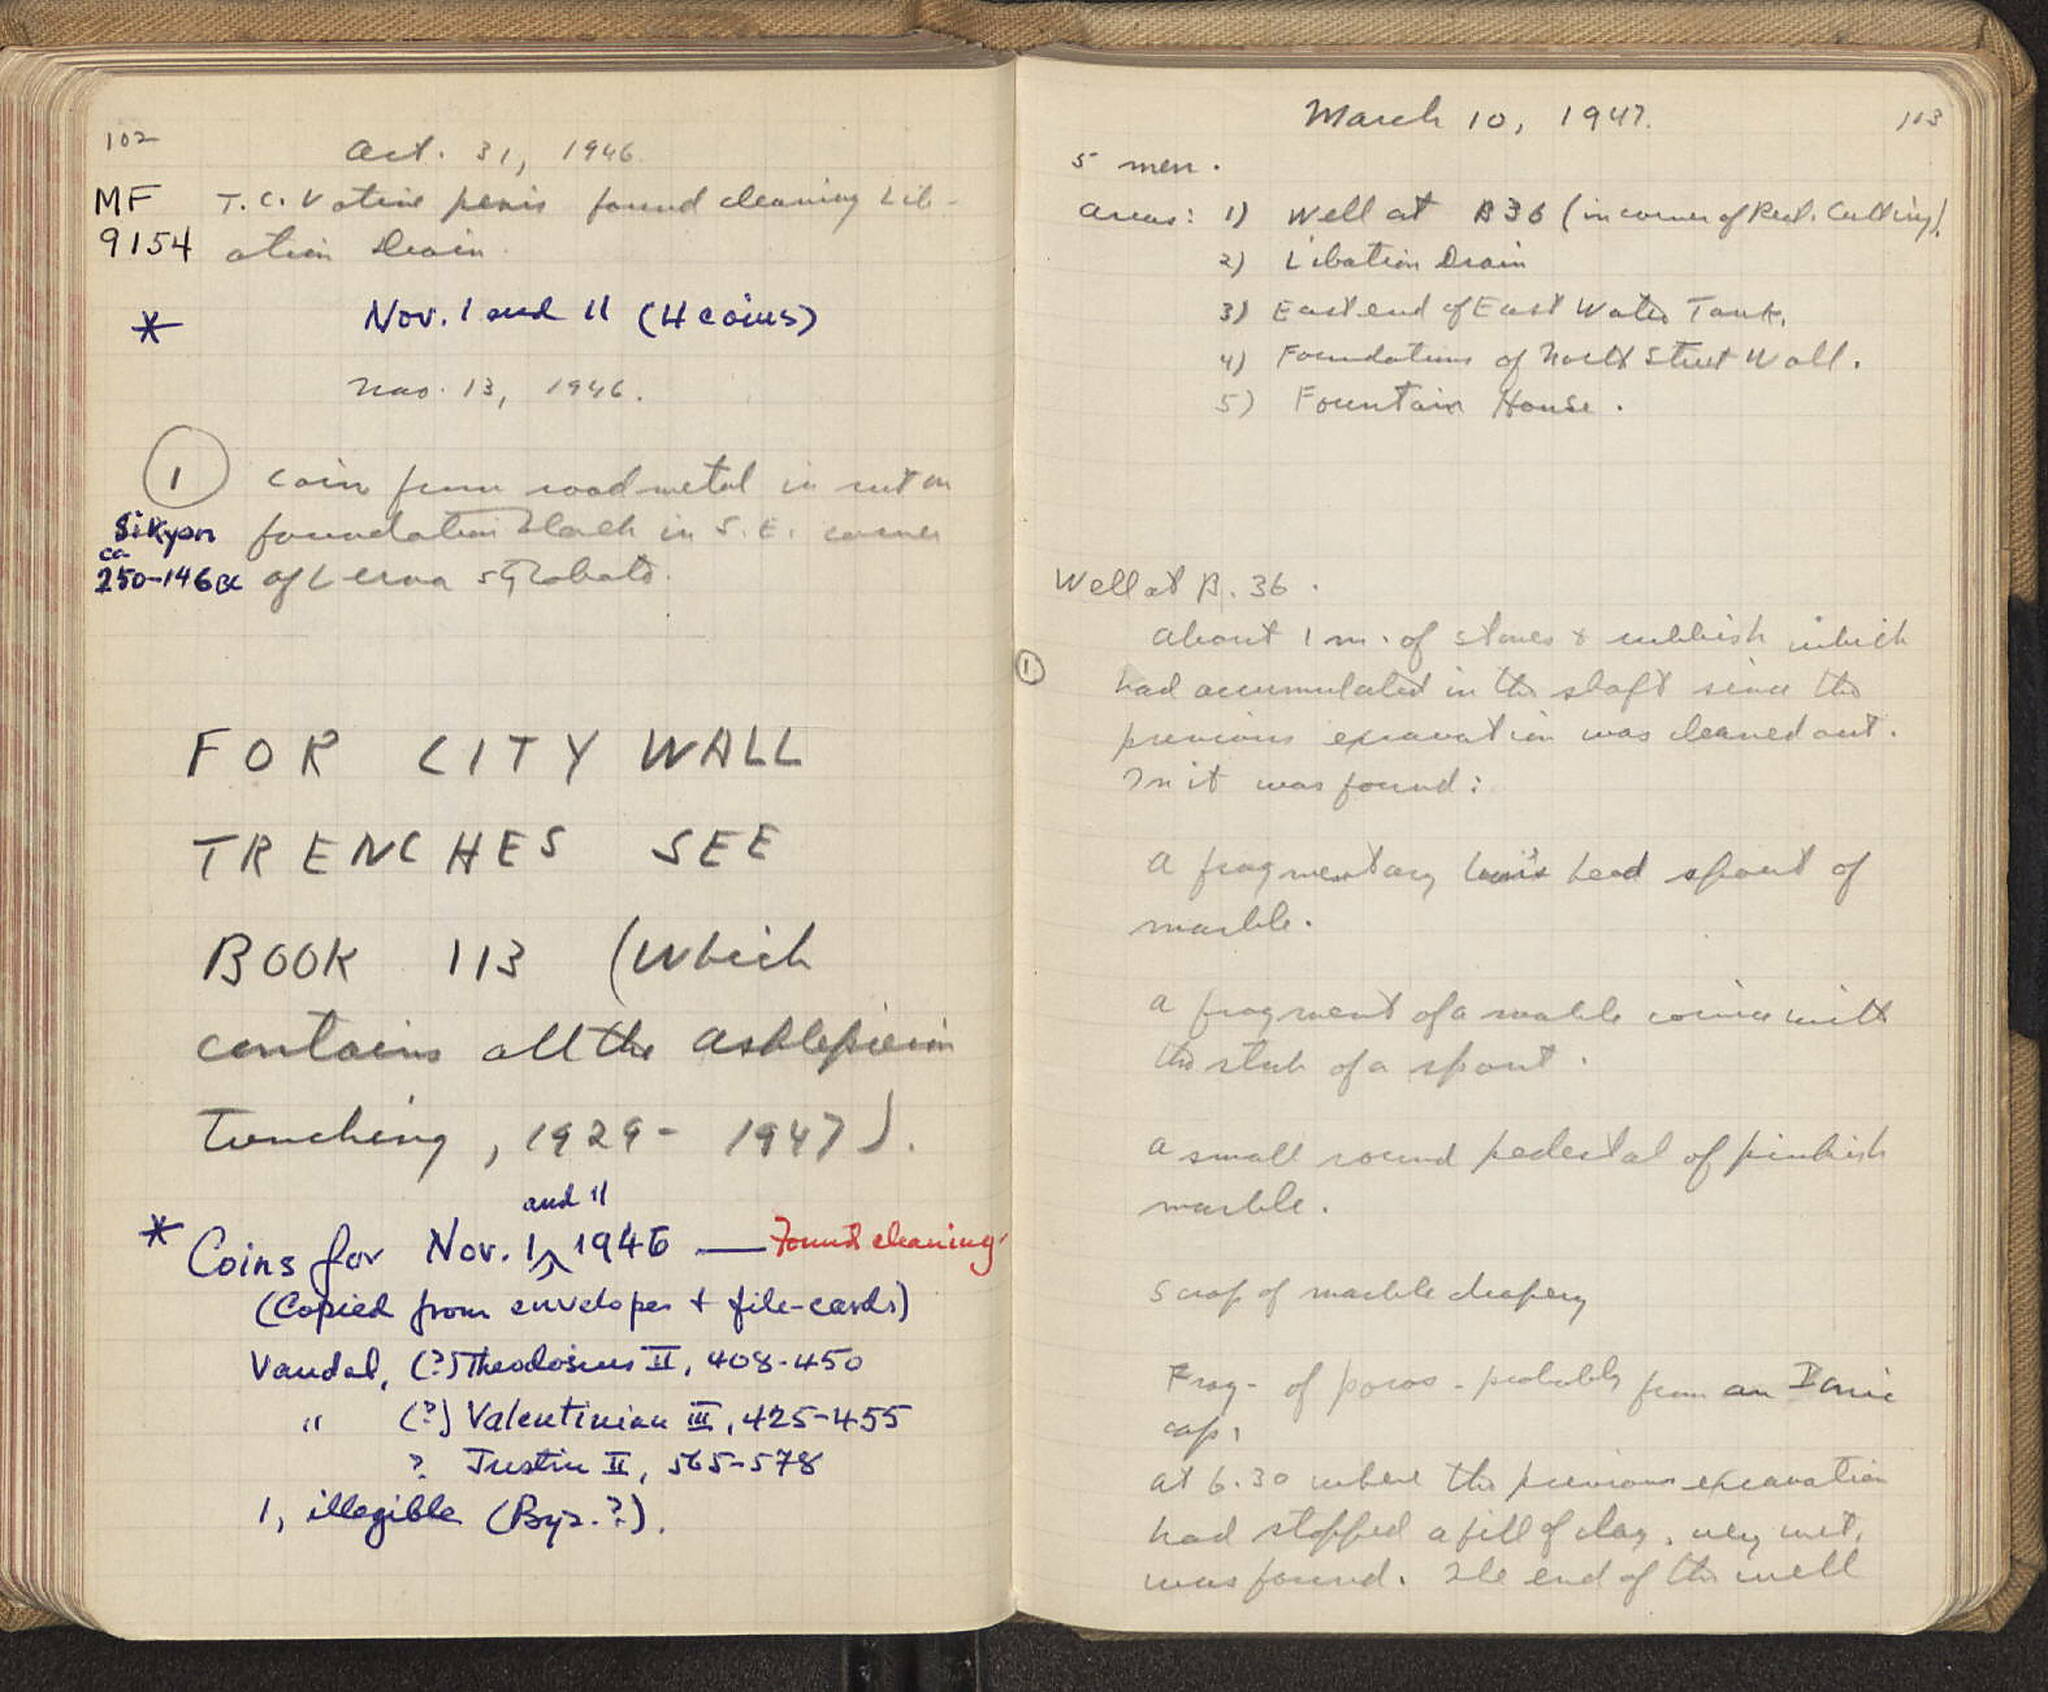 102
Oct. 31, 1946.
MF
9154
T.C. Votive penis found cleaning Lib-
ation Drain.
* Nov. 1 and 11 (4 coins)
Nov. 13, 1946.
1 coin from road metal in rut on
foundation block in S.E. corner
of Lerna stylobate.
Sikyon
ca
250-146 BC
FOR CITY WALL
TRENCHES SEE
BOOK 113 (which
contains all the Asklepieion
Trenching, 1929 - 1947).
and 11
* Coins for Nov. 1 ^ 1946 — Found cleaning.
(Copied from envelopes + file-cards)
Vandal, (?) Theodosius II, 408-450
" (?) Valentinian III, 425-455
? Justin II, 565-578
1, illegible (Byz.?).
March 10, 1947.
113
5 men.
Areas: 1) Well at B 36 (in corner of Rect. Cutting).
2) Libation Drain
3) East end of East Water Tank.
4) Foundations of North Street Wall.
5) Fountain House.
Well at B. 36.
1
About 1 m. of stones & rubbish which
had accumulated in the shaft since the
previous excavation was cleaned out.
In it was found:
A fragmentary lion's head spout of
marble.
A fragment of a marble cornice with
the stub of a spout.
A small round pedestal of pinkish
marble.
Scrap of marble drapery
Frag- of poros - probably from an Ionic
cap.
At 6.30 where the previous excavation
had stopped a fill of clay, very wet,
was found. The end of the well